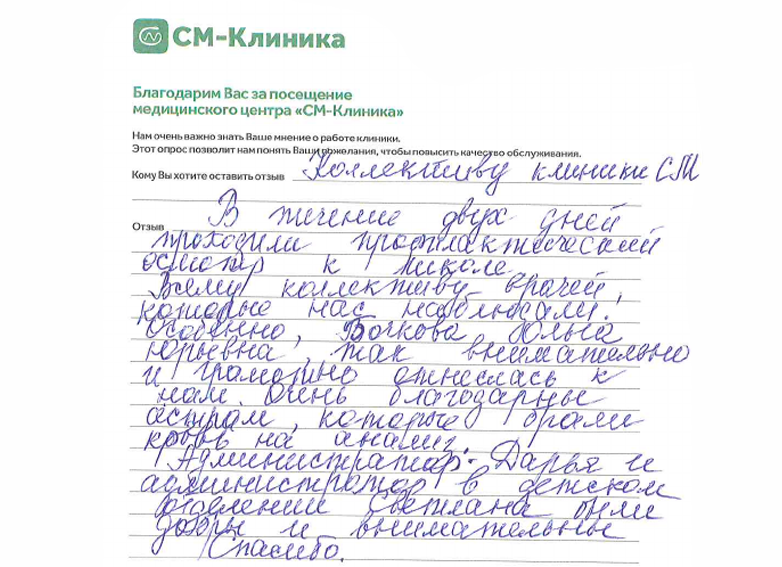 СМ-Клиника
Благодарим Вас за посещение
медицинского центра «СМ-Клиника»
Нам очень важно знать Ваше мнение о работе клиники.
Этот опрос позволит нам понять Ваши пожелания, чтобы повысить качество обслуживания.
Кому Вы хотите оставить отзыв Коллективу клиники СМ
Отзыв В течение двух дней
проходили профилактический
осмотр к школе.
Всему коллективу врачей,
которые нас наблюдали.
Особенно, Бочкова Юлия
Юрьевна, так внимательно
и грамотно отнеслась к
нам. Очень благодарны
сёстрам, которые брали
кровь на анализ.
Администратор Дарья и
администратор в детском
отделении Светлана были
добры и внимательны
Спасибо.